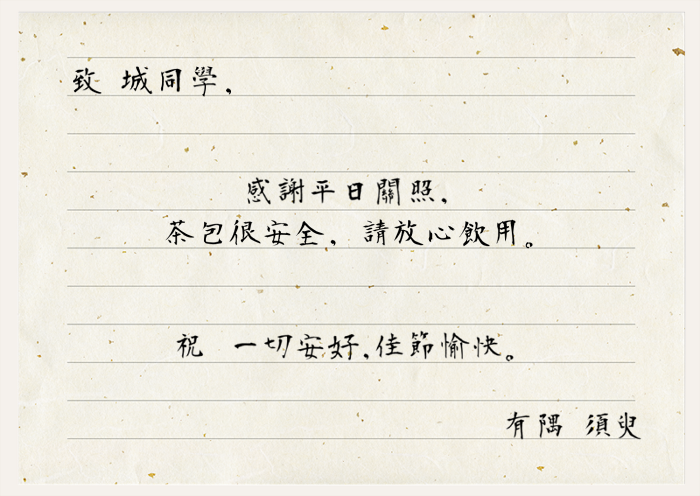 致 城同學,
感謝平日關照,
茶包很安全, 請放心飲用。
祝 一切安好,佳節愉快。
有隅 須臾